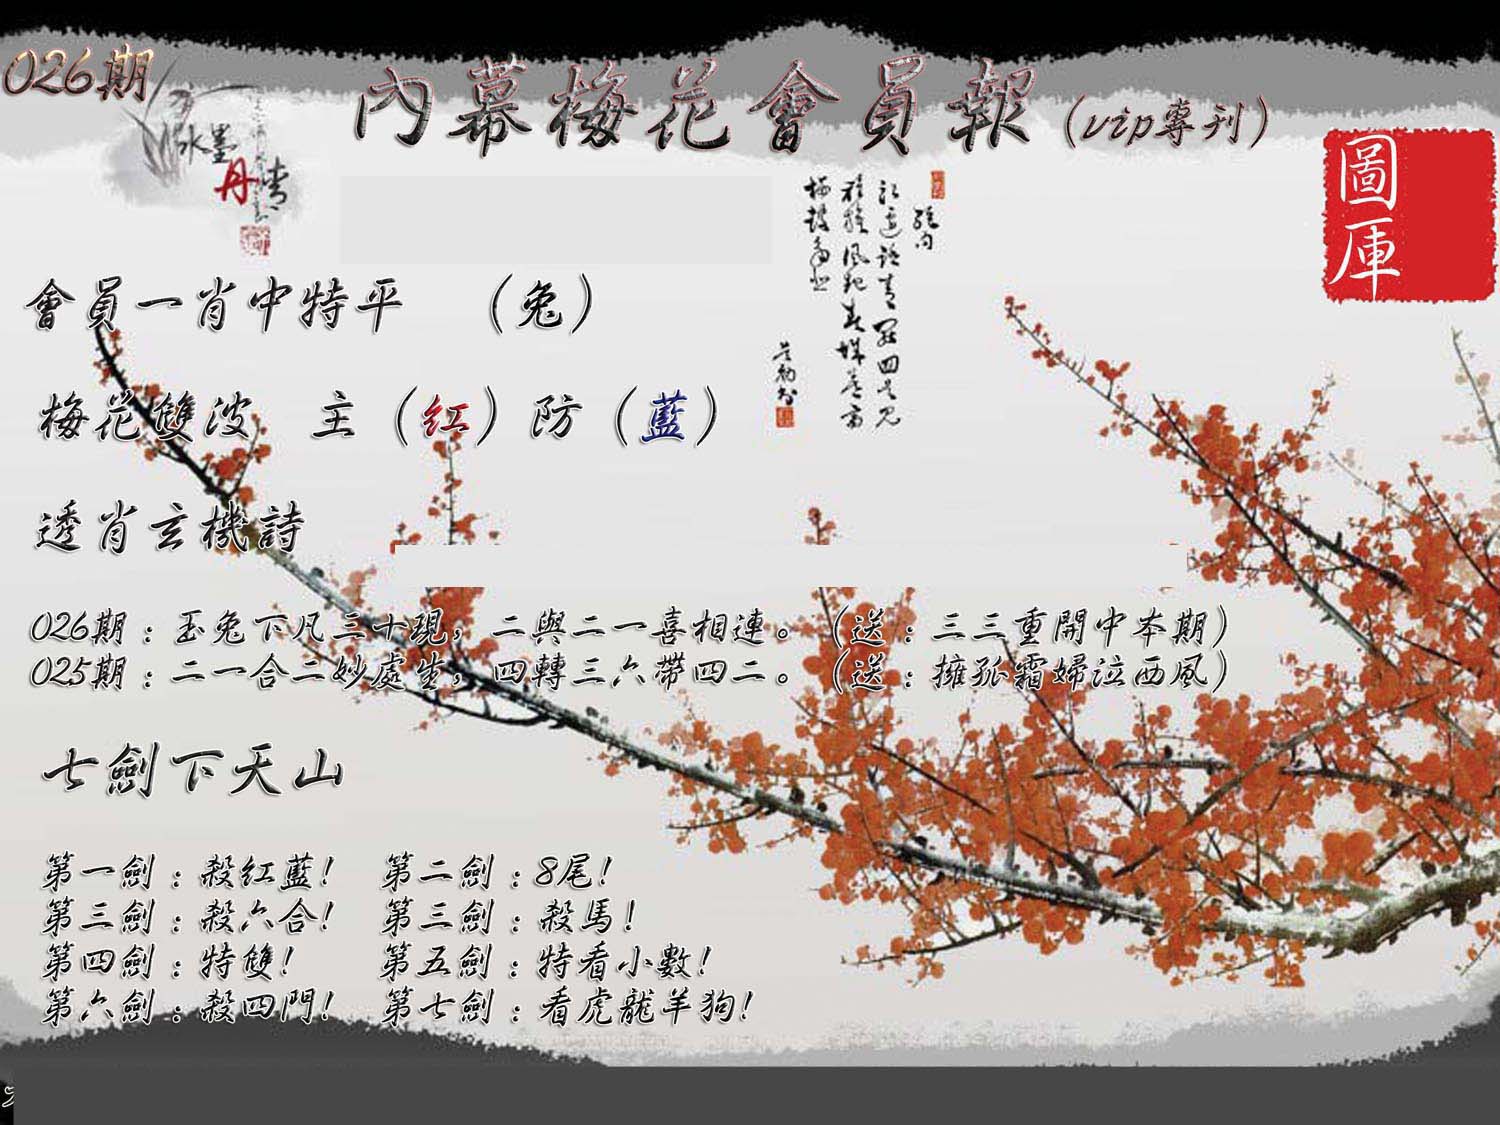 026期
內幕梅花會員報（vip專刊）
水墨
丹青
圖庫
會員一肖中特平　（兔）
梅花雙波　主（紅）防（藍）
透肖玄機詩
026期：玉兔下凡三十現，二與二一喜相連。（送：三三重開中本期）
025期：二一合二妙處生，四轉三六帶四二。（送：擁孤霜婦泣西風）
七劍下天山
第一劍：殺紅藍！　第二劍：8尾！
第三劍：殺六合！　第三劍：殺馬！
第四劍：特雙！　第五劍：特看小數！
第六劍：殺四門！　第七劍：看虎龍羊狗！